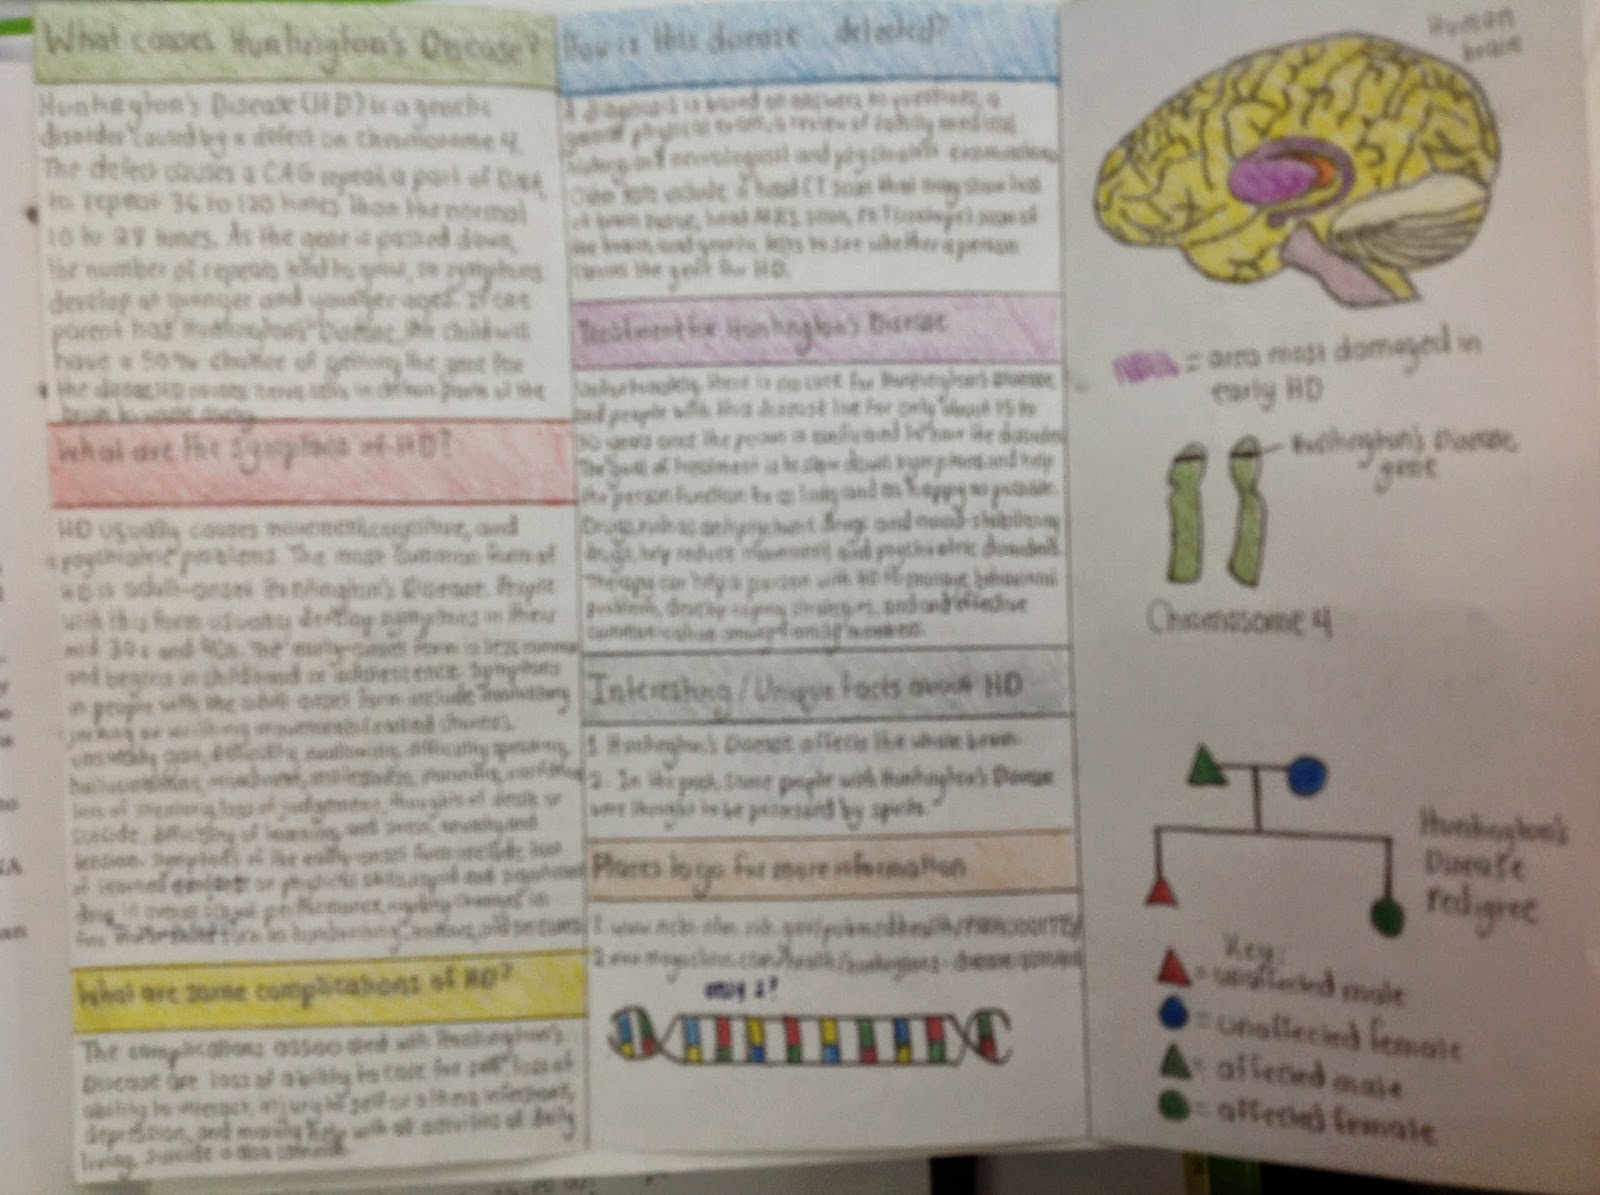 What causes Huntington's Disease?
Huntington's Disease (HD) is a genetic
disorder caused by a defect on chromosome 4.
The defect causes a CAG repeat, a part of DNA,
to repeat 36 to 120 times than the normal
10 to 28 times. As the gene is passed down,
the number of repeats tend to grow, so symptoms
develop at younger and younger ages. If one
parent has Huntington's Disease, the child will
have a 50% chance of getting the gene for
the disease. HD causes nerve cells in certain parts of the
brain to waste away.
What are the symptoms of HD?
HD usually causes movement, cognitive, and
psychiatric problems. The most common form of
HD is adult-onset Huntington's Disease. People
with this form usually develop symptoms in their
mid 30s and 40s. The early-onset form is less common
and begins in childhood or adolescence. Symptoms
in people with the adult-onset form include involuntary
jerking or writhing movements (called chorea),
difficulty swallowing, difficulty speaking,
hallucinations, restlessness, paranoia,
loss of memory, loss of judgement, thoughts of death or
suicide, difficulty of learning, and stress, anxiety and
tension. Symptoms of the early-onset form include loss
of learned or physical skills, rapid and significant
drop in overall school performance, changes in
and seizures.
What are some complications of HD?
The complications associated with Huntington's
Disease are loss of ability to care for self, loss of
ability to interact, injury to self or others, infections,
depression, and with all activities of daily
living. Suicide is also common.
How is this disease detected?
A diagnosis is based on answers to questions, a
general physical exam, a review of family medical
history, and neurological and psychiatric examinations.
Other tests include a head CT scan that may show loss
of brain tissue, head MRI scan, PET (isotope) scan of
the brain, and genetic tests to see whether a person
carries the gene for HD.
Treatment for Huntington's Disease
Unfortunately, there is no cure for Huntington's Disease
and people with this disease live for only about 15 to
30 years once the person is confirmed to have the disorder.
The goal of treatment is to slow down symptoms and help
the person function for as long and as happy as possible.
Drugs, such as antipsychotic drugs and mood-stabilizing
drugs, help reduce movement and psychiatric disorders.
Therapy can help a person with HD to manage behavioral
problems, develop coping strategies, and and effective
communication among family members.
Interesting / Unique facts about HD
1. Huntington's Disease affects the whole brain.
2. In the past, some people with Huntington's Disease
were thought to be possessed by spirits.
Places to go for more information
1. www.ncbi.nlm.nih.gov/pubmedhealth/
2.
only 2?
Human
brain
= area most damaged in
early HD
Huntington's Disease
gene
Chromosome 4
Huntington's
Disease
Pedigree
Key:
= unaffected male
= unaffected female
= affected male
= affected female